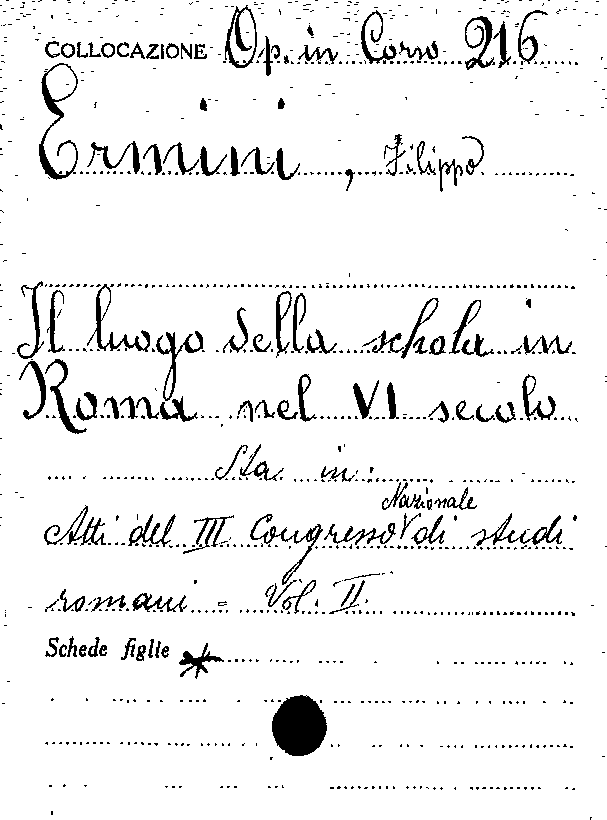 COLLOCAZIONE Op. in Corso 216
Ermini, Filippo
Il luogo della schola in
Roma nel VI secolo
Sta in:
Nazionale
Atti del III Congresso di studi
romani - Vol. II.
Schede figlie *